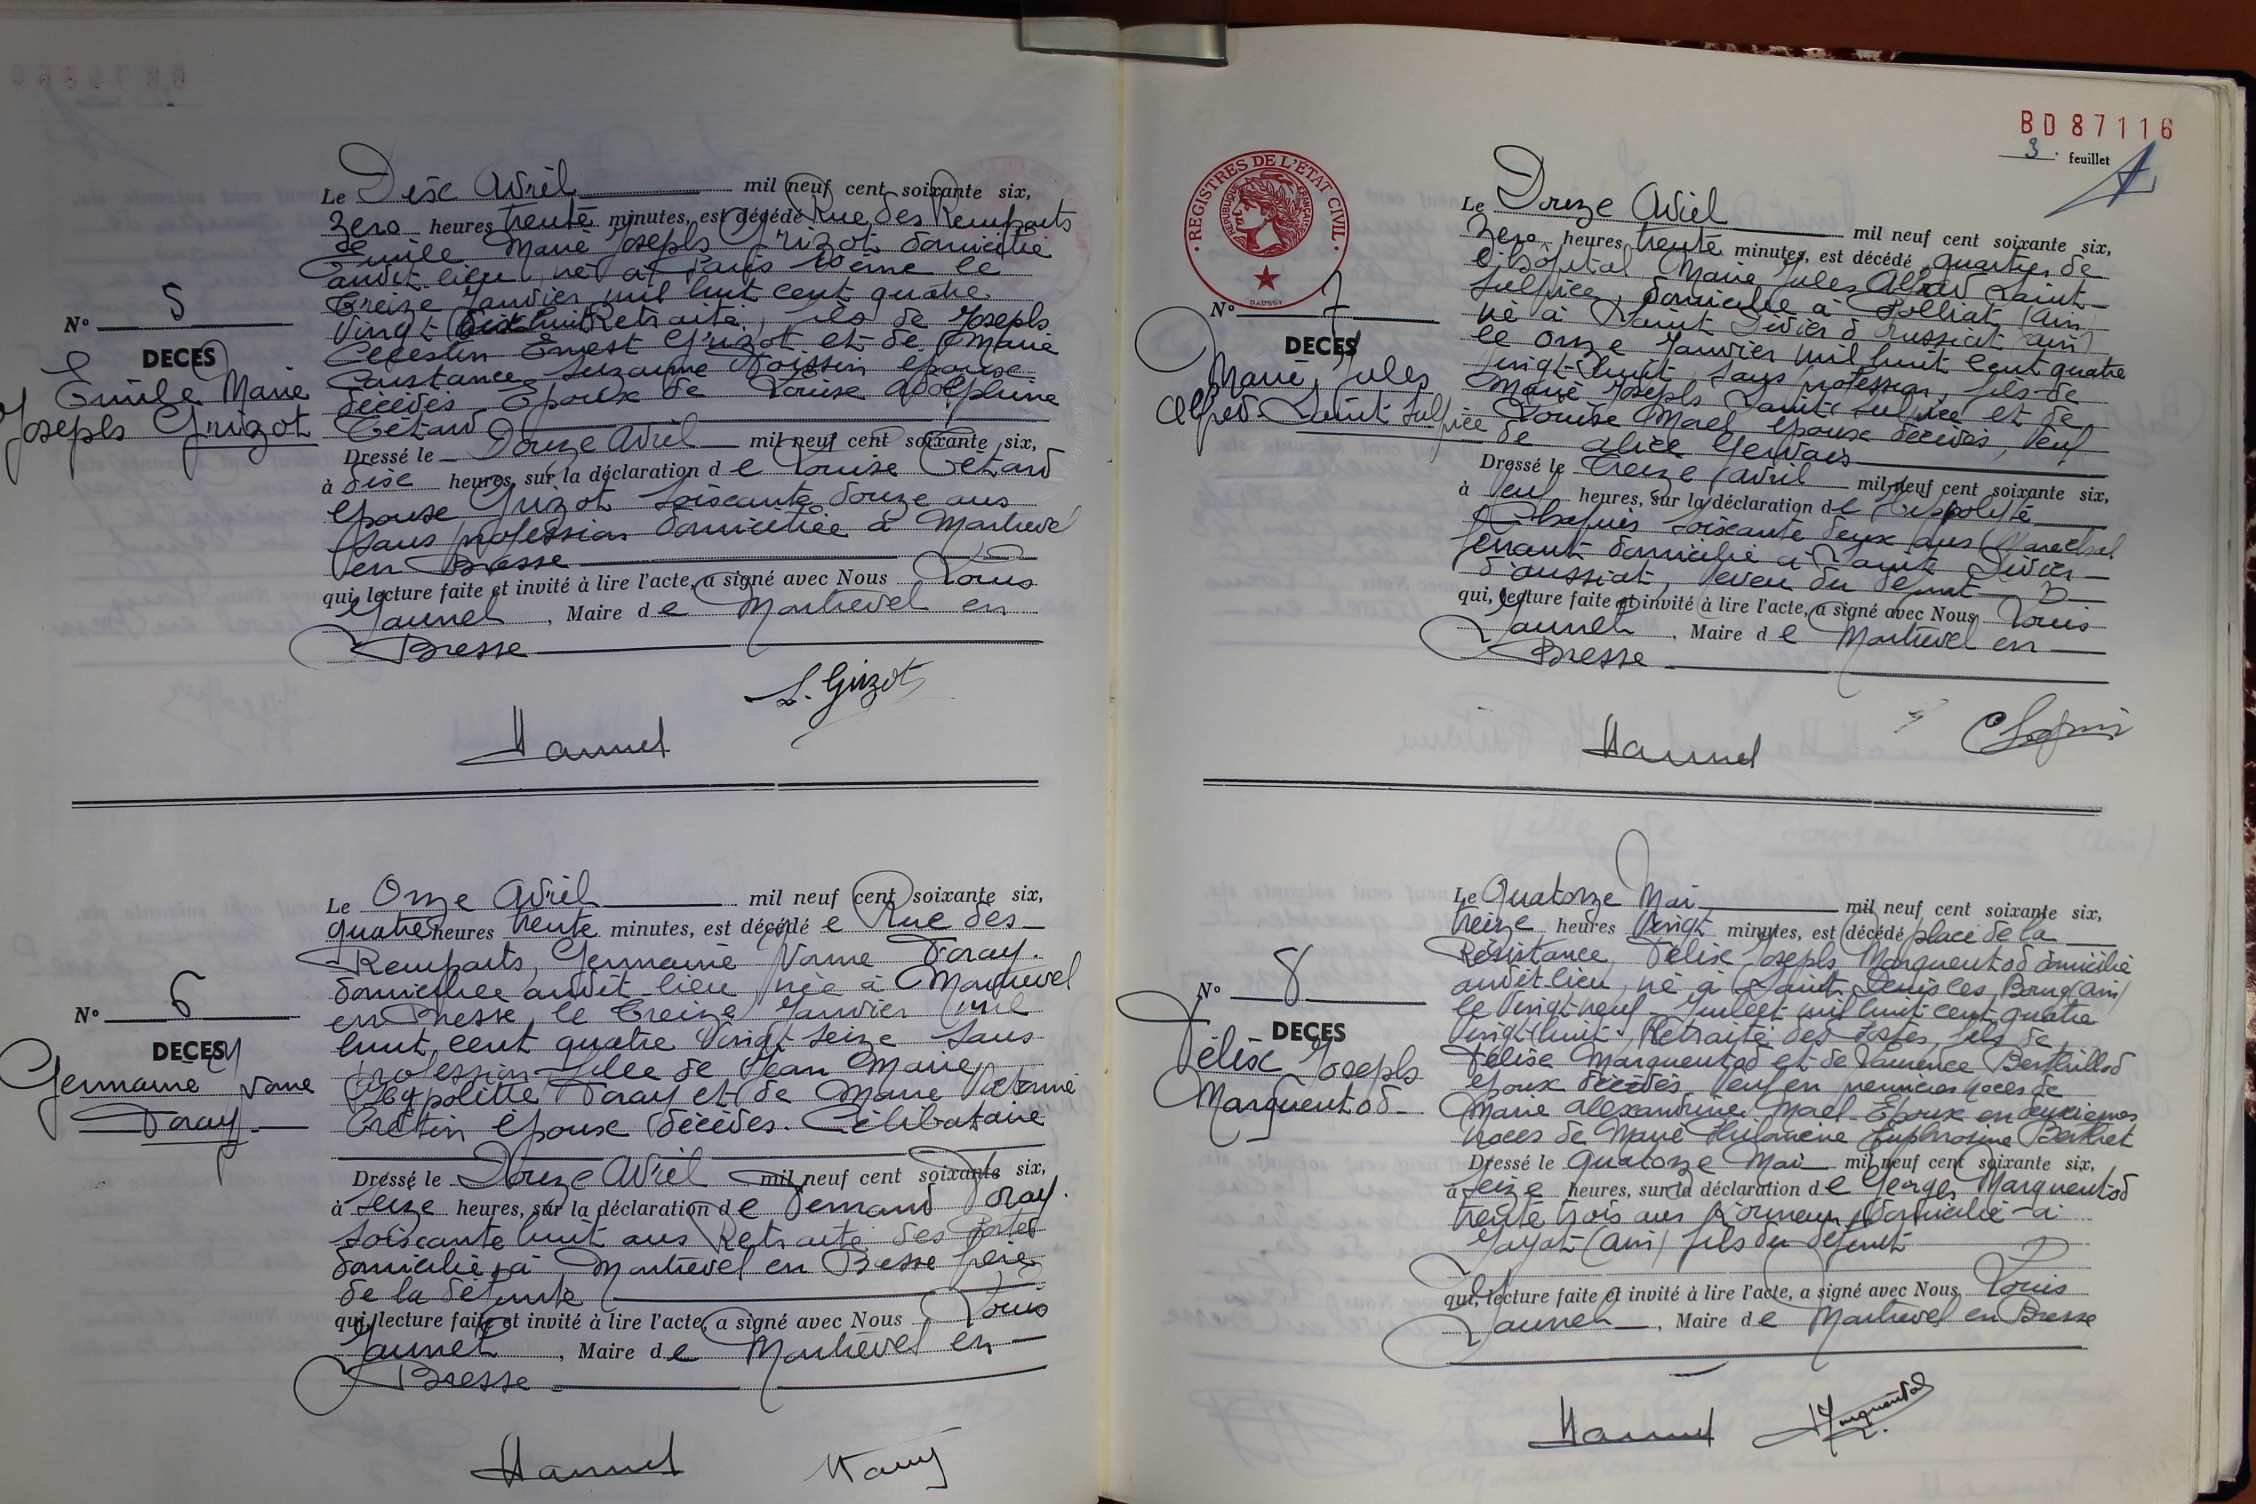 N° 5
DECES
Emile Marie
Joseph Grizot
Le Dix Avril mil neuf cent soixante six,
Zero heures trente minutes, est décédé Rue des Remparts
de
Emile Marie Joseph Grizot domicilié
audit lieu, né à Paris ème le
treize Janvier mil huit cent quatre
Vingt huit Retraité, fils de Joseph
Celestin Ernest Grizot et de Marie
Constance Suzanne Poissin époux
décédés. Epoux de Louise Adolphine
Cétard
Dressé le Douze Avril mil neuf cent soixante six,
à dix heures, sur la déclaration de Louise Cétard
épouse Grizot soixante douze ans
sans profession domiciliée à Montrevel
en Bresse
qui, lecture faite et invité à lire l'acte, a signé avec Nous Louis
Jaunet, Maire de Montrevel en
Bresse
L. Grizot
N° 6
DECES
Germaine
Foray
Le Onze Avril mil neuf cent soixante six,
quatre heures trente minutes, est décédée Rue des
Remparts, Germaine Foray.
domiciliée audit lieu, née à Montrevel
en Bresse, le treize Janvier mil
huit cent quatre Vingt seize sans
profession fille de Jean Marie
Hyppolitte Foray et de Marie
Crétin époux décédés. Célibataire
Dressé le Douze Avril mil neuf cent soixante six,
à seize heures, sur la déclaration de Fernand Foray.
soixante huit ans Retraité des Postes
domicilié à Montrevel en Bresse frère
de la défunte
qui, lecture faite et invité à lire l'acte, a signé avec Nous Louis
Jaunet, Maire de Montrevel en
Bresse
BD87116
3. feuillet
REGISTRES DE L'ÉTAT CIVIL
RÉPUBLIQUE FRANÇAISE
DAUSSY
N° 7
DECES
Marie, Jules
Alfred Saint Sulpice
Le Douze Avril mil neuf cent soixante six,
Zero heures trente minutes, est décédé quartier de
l'hôpital Marie Jules Alfred Saint-
Sulpice, domicilié à Polliat (Ain)
né à Saint Didier d'Aussiat (Ain)
le onze Janvier mil huit cent quatre
vingt-huit, sans profession, fils de
Marie Joseph Saint Sulpice et de
Louise Morel époux décédés, Veuf
de Alice Gervais
Dressé le treize Avril mil neuf cent soixante six,
à neuf heures, sur la déclaration de Hippolyte
Chapuis soixante deux ans Maréchal
ferrant domicilié à Saint Didier
d'Aussiat, neveu du défunt
qui, lecture faite et invité à lire l'acte, a signé avec Nous Louis
Jaunet, Maire de Montrevel en
Bresse
N° 8
DECES
Félix Joseph
Marguentod
Le Quatorze Mai mil neuf cent soixante six,
treize heures Vingt minutes, est décédé place de la
Résistance, Félix Joseph Marguentod domicilié
audit lieu, né à Saint Denis les Bourg (Ain)
le Vingt neuf Juillet mil huit cent quatre
Vingt huit. Retraité des Postes, fils de
Félix Marguentod et de Laurence Berthillod
époux décédés, Veuf en premières noces de
Marie Alexandrine Morel. Epoux en deuxièmes
noces de Marie Philomène Euphrosine Berthet
Dressé le quatorze Mai mil neuf cent soixante six,
à seize heures, sur la déclaration de Georges Marguentod
trente trois ans domicilié à
Jayat (Ain) fils du défunt
qui, lecture faite et invité à lire l'acte, a signé avec Nous Louis
Jaunet, Maire de Montrevel en Bresse